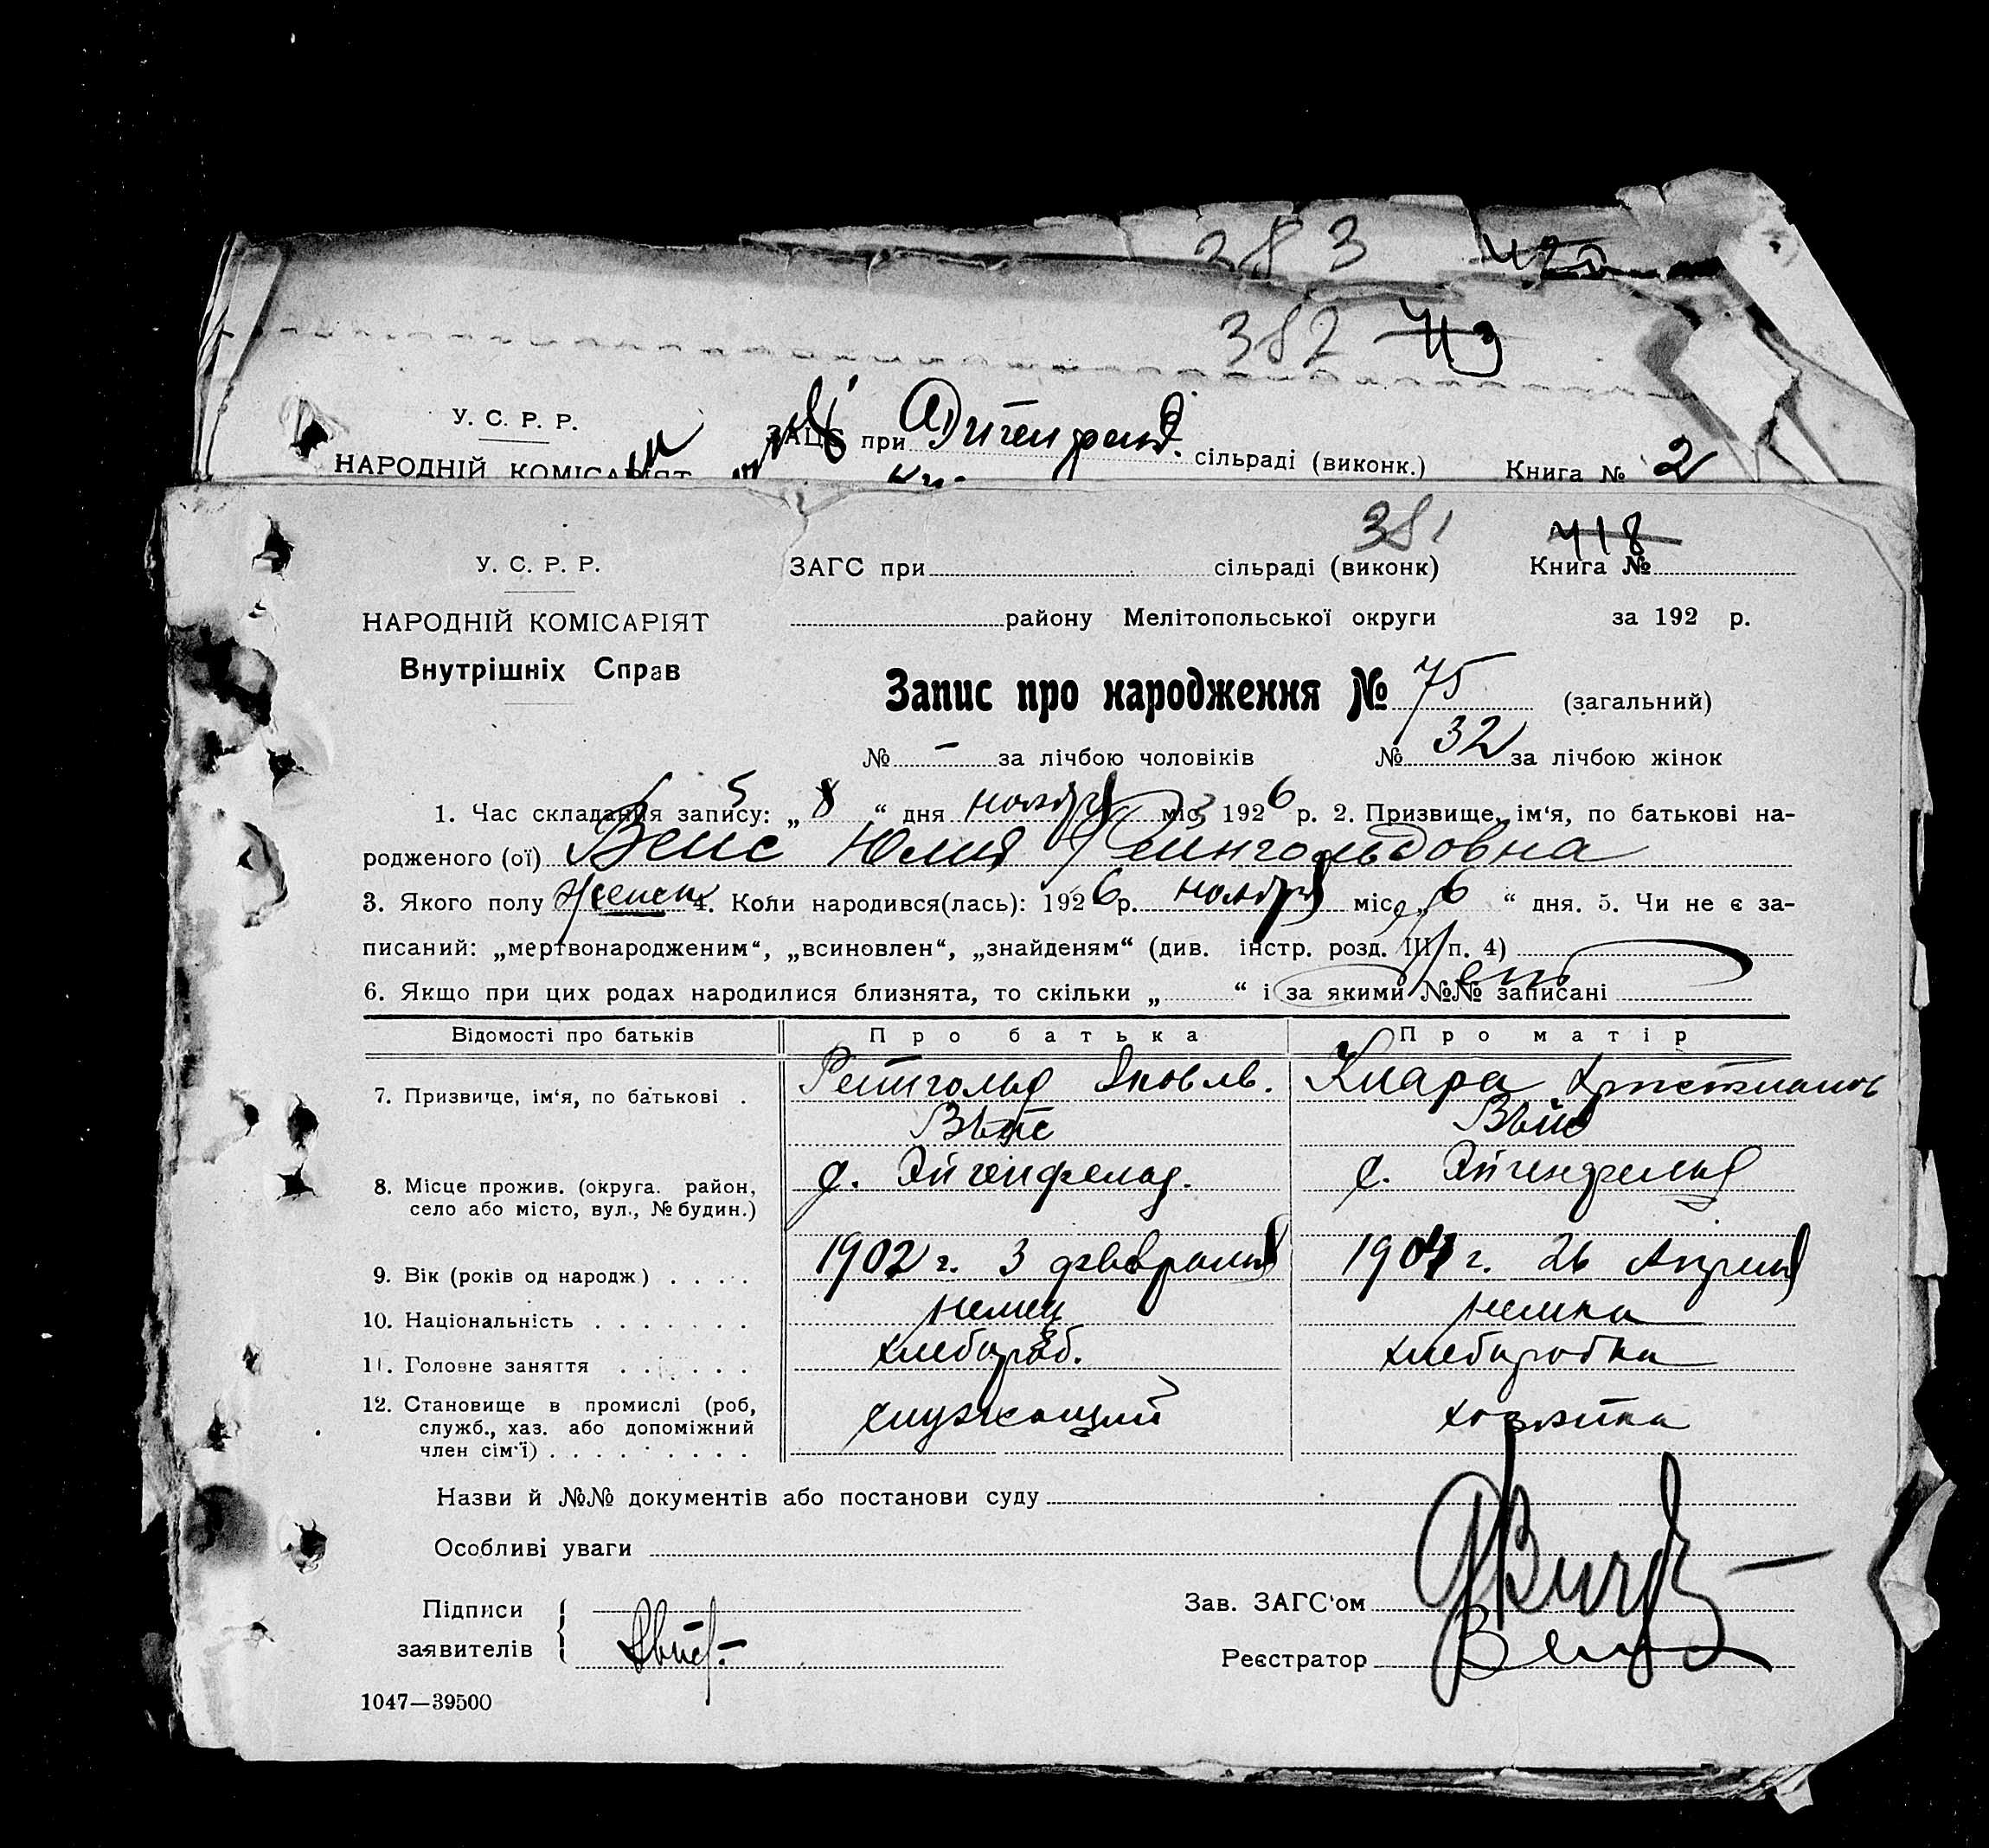 283
382
У. С. Р. Р.
ЗАЦС при сільраді (виконк.) Книга № 2
НАРОДНІЙ КОМІСАРІЯТ
381 418
У. С. Р. Р. ЗАГС при сільраді (виконк) Книга №
НАРОДНІЙ КОМІСАРІЯТ району Мелітопольської округи за 192 р.
Внутрішніх Справ
Запис про народження № 75 (загальний)
№ – за лічбою чоловіків № 32 за лічбою жінок
1. Час складання запису: „ 8 “ дня ноября міс 1926 р. 2. Призвище, ім‘я, по батькові на-
родженого (ої) Вейс Юлия Рейнгольдовна
3. Якого полу женск 4. Коли народився(лась): 1926 р. ноября міс „ 6 “ дня. 5. Чи не є за-
писаний: „мертвонародженим“, „всиновлен“, „знайденям“ (див. інстр. розд. III п. 4)
6. Якщо при цих родах народилися близнята, то скільки „ “ і за якими №№ записані
Відомості про батьків Про батька Про матір
7. Призвище, ім‘я, по батькові . Рейнгольд Яковлв. Клара Христианов
Вѣйс Вѣйс
8. Місце прожив. (округа. район, с. Эйгенфельд. с. Эйгенфельд
село або місто, вул., № будин.)
9. Вік (років од народж) . . . . 1902 г. 3 февраля г. 26 Апреля
10. Національність . . . . . . . немец немка
11. Головне заняття . . . . . . хлебороб. хлеборобка
12. Становище в промислі (роб, служащий хозяйка
служб., хаз. або допоміжний
член сім‘ї) . . . . . . . . .
Назви й №№ документів або постанови суду
Особливі уваги
Підписи Зав. ЗАГС‘ом
заявителів Реєстратор
1047—39500